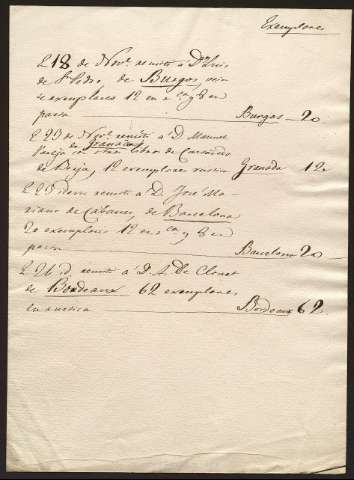 Exemplares
El 18 de Novre. remití a Dn. Luis
de Sn. Pedro, de Burgos, vein
te exemplares 12 en rca. y 8 en
pasta Burgos - 20
El 20 de Novre. remití a D. Manuel
de Granada
de Berja, 12 exemplares rustica Granada 12
El 25 idem remití a D. José Ma-
riano de Cabanes, de Barcelona
20 exemplares 12 en rca. y 8 en
pasta Barcelona 20
El 26 id. remití a D. A. De Clouet
de Bordeaux 62 exemplares
en rustica Bordeaux 62